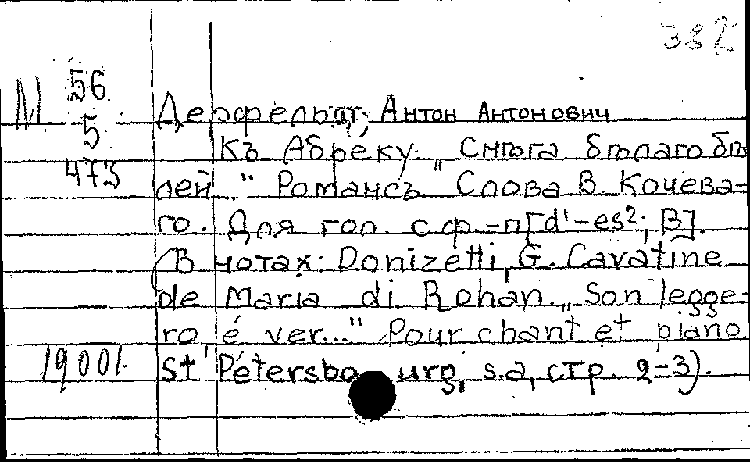 382
М 56
5
473
Дерфельдт, Антон Антонович
Къ Абреку. "Снѣга бѣлаго бѣ-
лей" Романсъ Слова В. Кочева-
го. Для гол. с ф.-п [d'-es²; B].
(В нотах: Donizetti, G. Cavatine
de Maria di Rohan. „Son legge-
ro é ver..." Pour chant et piano
St Pétersbourg, s.a, стр. 2-3).